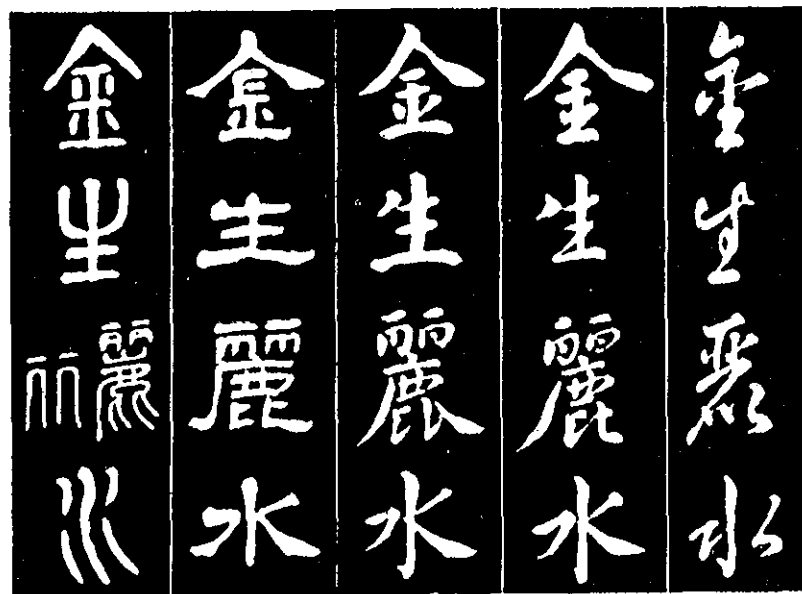 金生麗水
金生麗水
金生麗水
金生麗水
金生麗水